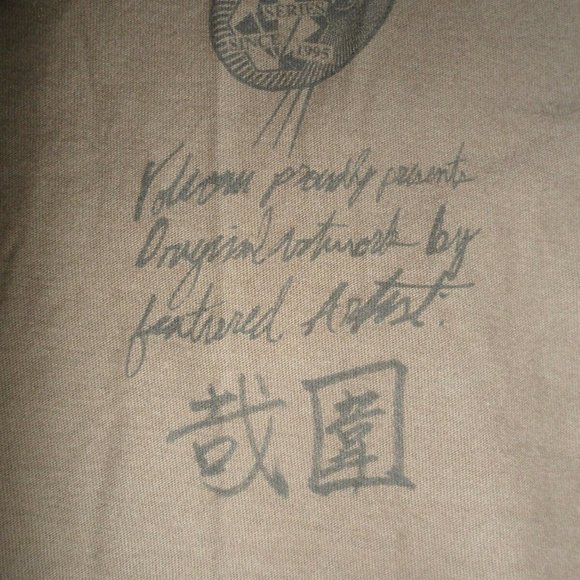 SERIES
SINCE 1995
Volcom proudly presents
Original Artwork by
featured Artist:
哉圍